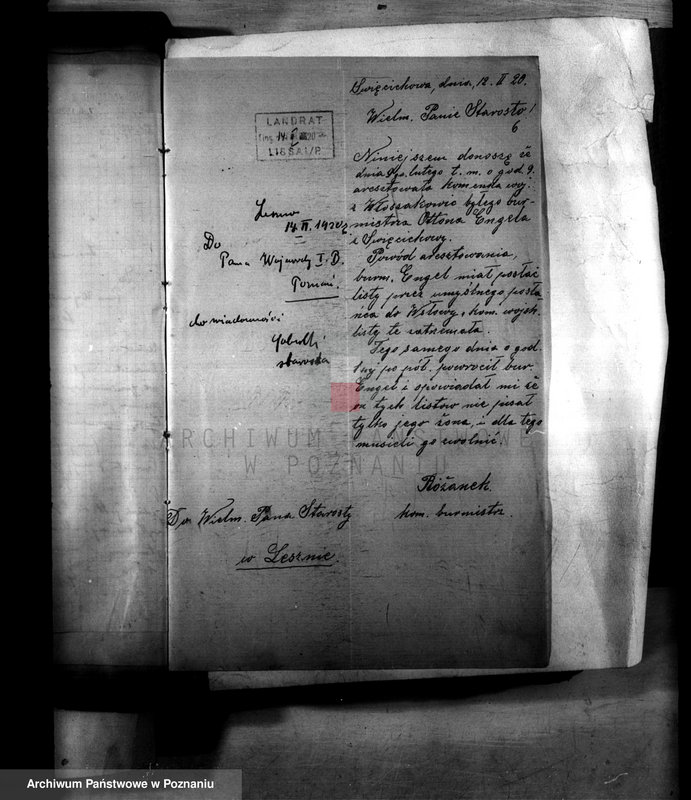 Święcichowa, dnia, 12. II 20.
Wielm. Panie Starosto!
6
Niniejszem donoszę że
dnia lutego t. m. o god. 9.
aresztowała komenda woj.
z Włoszakowic byłego bur-
mistrza Ottona Engela
z Święcichowy.
Powód aresztowania,
burm. Engel miał posłać
listy przez umyślnego posła-
ńca do Wsłowy, kom. wojsk.
listy te zatrzymała.
Tego samego dnia o god.
po poł. powrócił bur.
Engel i opowiadał mi że
on tych listów nie pisał
tylko jego żona, i dla tego
musieli go uwolnić.
Różanek
kom. burmistrz.
Do Wielm. Pana Starosty
w Lesznie.
LANDRAT
Eing. 14. II. 1920
LISSA i/P.
Leszno
14. II. 1920
Do
Pana Wojewody I. D.
Poznań.
do wiadomości
starosta
ARCHIWUM PAŃSTWOWE
W POZNANIU
Archiwum Państwowe w Poznaniu